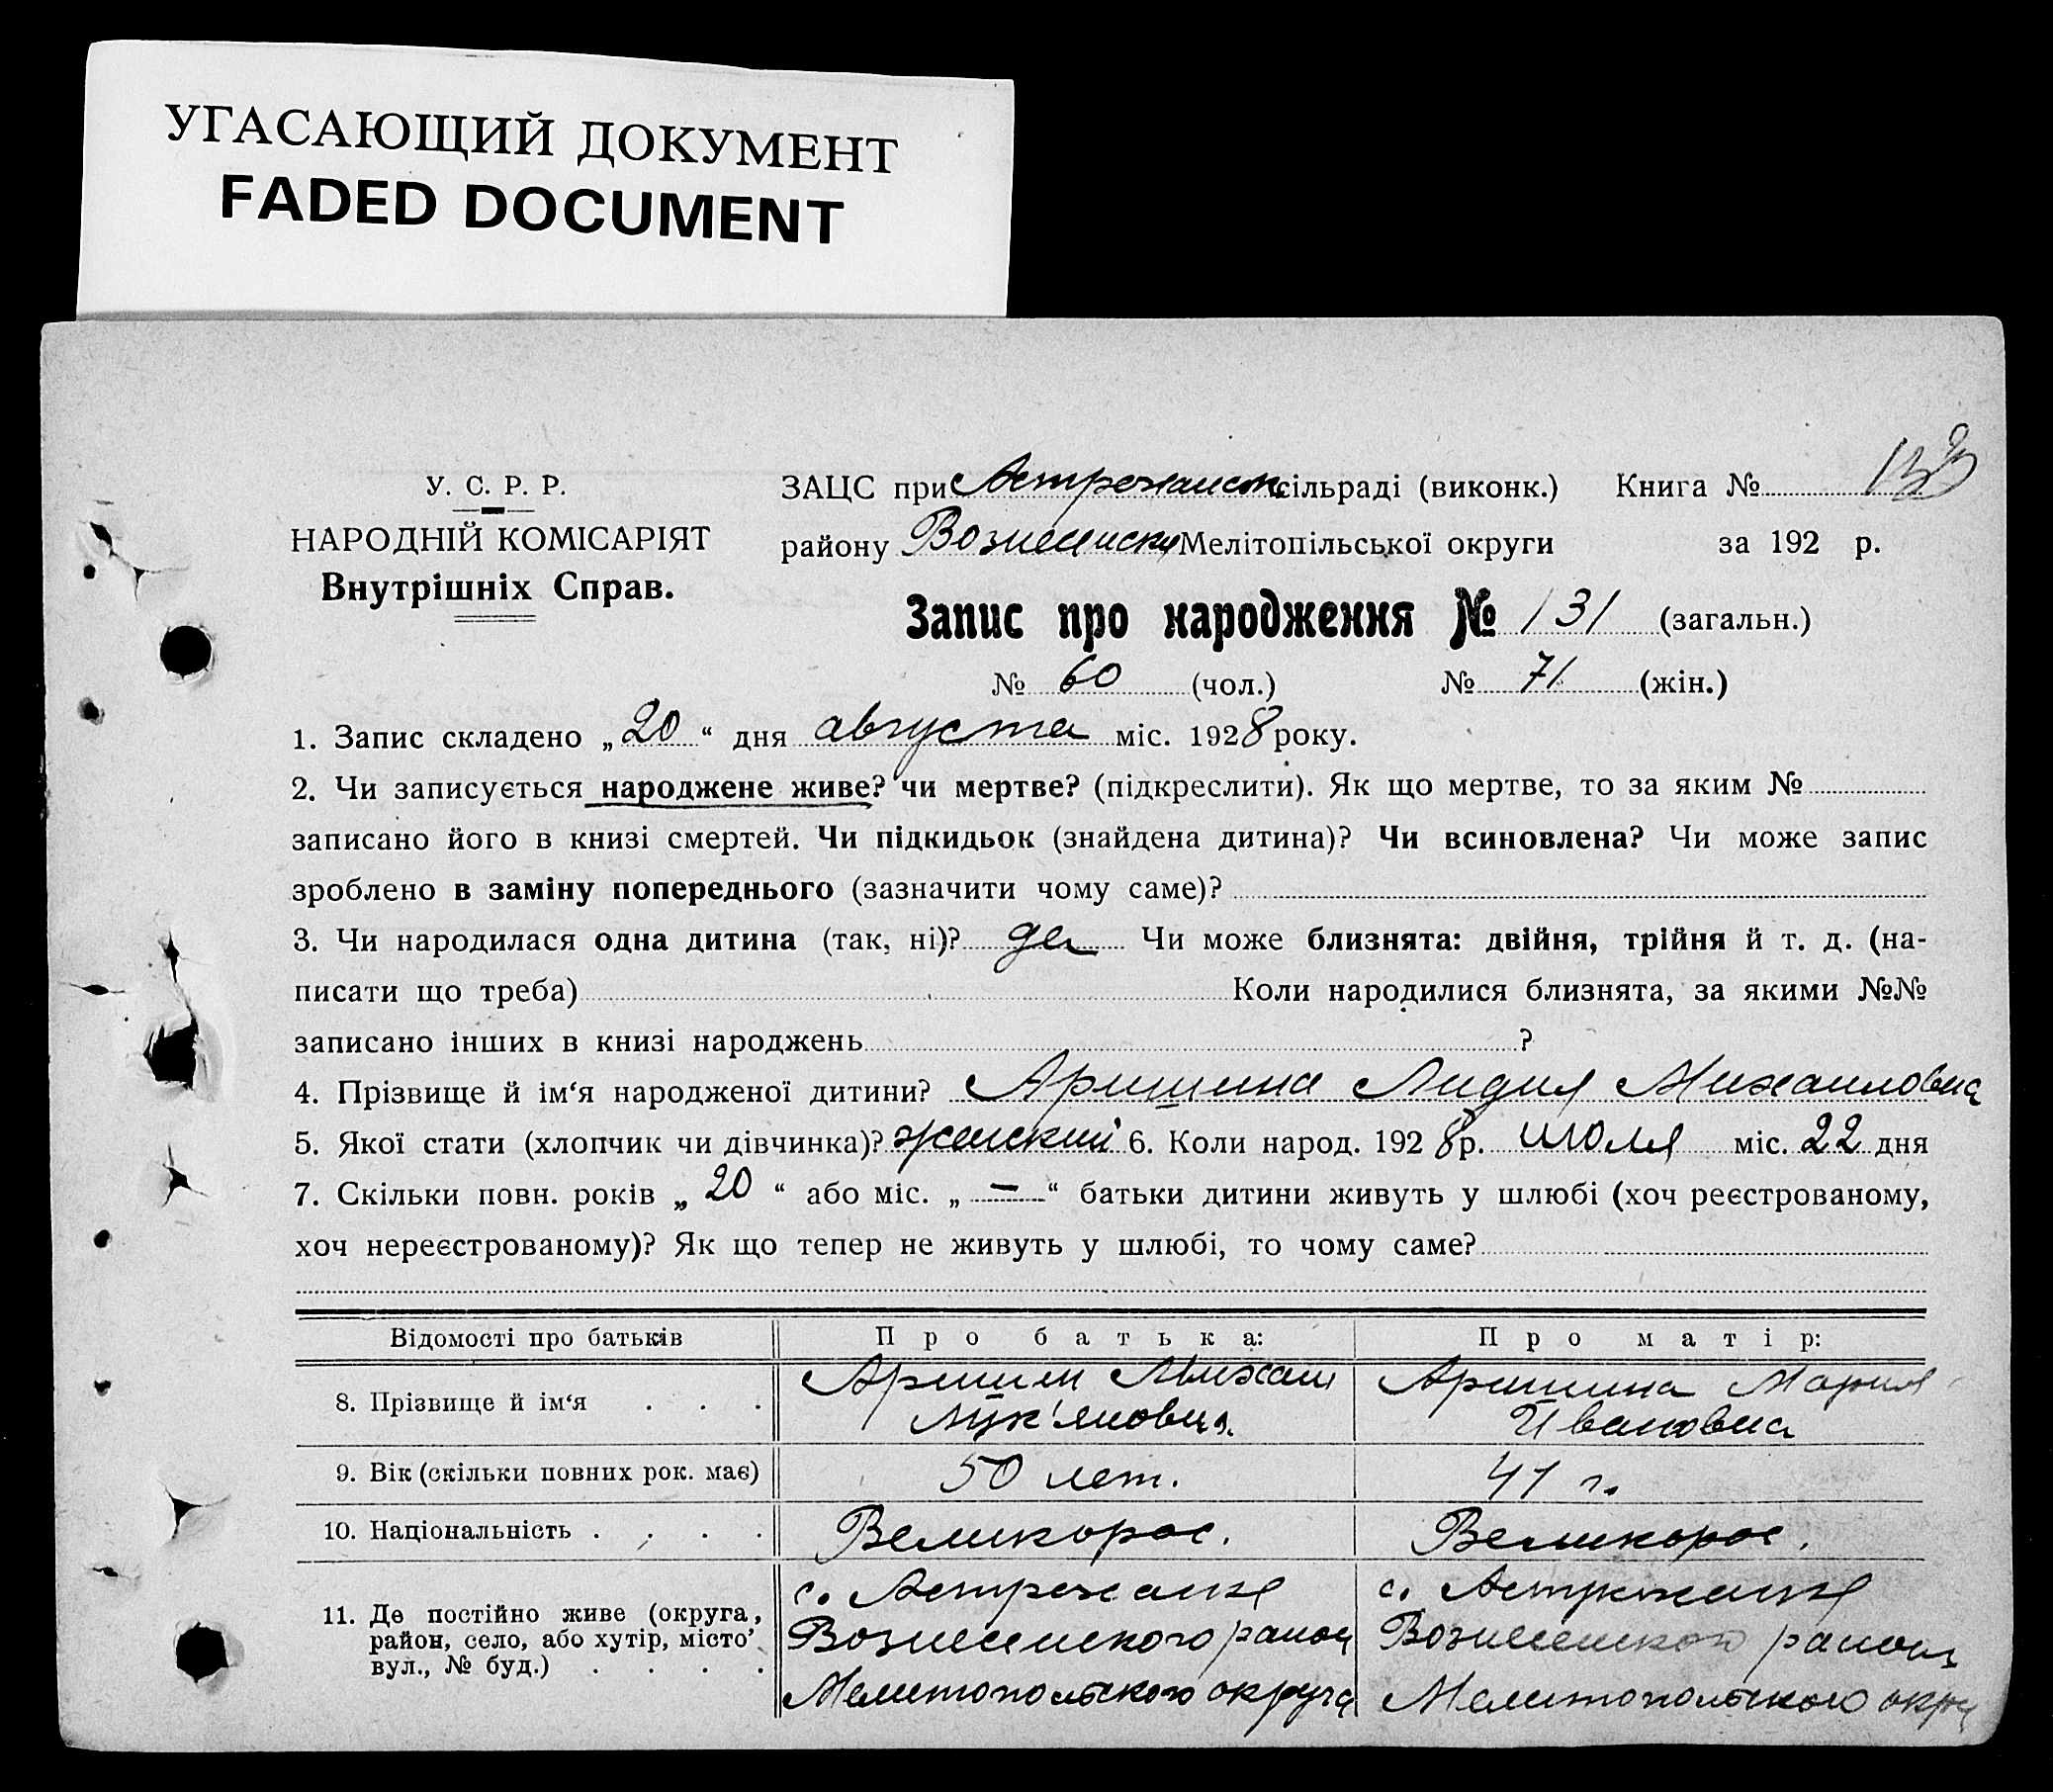 УГАСАЮЩИЙ ДОКУМЕНТ
FADED DOCUMENT
У. С. Р. Р.
НАРОДНІЙ КОМІСАРІЯТ
Внутрішніх Справ.
ЗАЦС при Астраханск сільраді (виконк.) Книга №
району Вознесенску Мелітопільської округи за 192 р.
Запис про народження № 131 (загальн.)
№ 60 (чол.) № 71 (жін.)
1. Запис складено „20“ дня августа міс. 1928 року.
2. Чи записується народжене живе? чи мертве? (підкреслити). Як що мертве, то за яким №
записано його в книзі смертей. Чи підкидьок (знайдена дитина)? Чи всиновлена? Чи може запис
зроблено в заміну попереднього (зазначити чому саме)?
3. Чи народилася одна дитина (так, ні)? да Чи може близнята: двійня, трійня й т. д. (на-
писати що треба) Коли народилися близнята, за якими №№
записано інших в книзі народжень ?
4. Прізвище й ім‘я народженої дитини? Аришина Лидия Михаиловна
5. Якої стати (хлопчик чи дівчинка)? женский 6. Коли народ. 1928 р. июля міс. 22 дня
7. Скільки повн. років „20“ або міс. „—“ батьки дитини живуть у шлюбі (хоч реєстрованому,
хоч нереєстрованому)? Як що тепер не живуть у шлюбі, то чому саме?
Відомості про батьків Про батька: Про матір:
8. Прізвище й ім‘я . . . Аришин Михаил Аришина Мария
Лук'янович. Ивановна
9. Вік (скільки повних рок. має) 50 лет. 41 г.
10. Національність . . . . Великорос. Великорос.
11. Де постійно живе (округа, с. Астраханка с. Астраханка
район, село, або хутір, місто, Вознесенского района Вознесенского района
вул., № буд.) . . . . Мелитопольского округа Мелитопольского округ